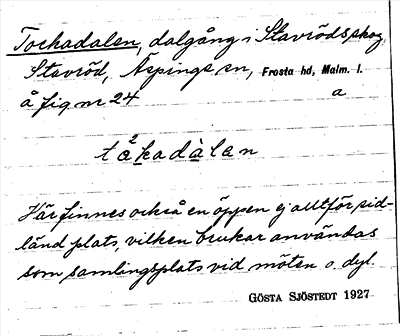 Tockadalen, dalgång i Stavrödsskog,
Stavröd, Äspinge sn, Frosta hd, Malm. l.
å fig nr 24 a
tåkadàlen
Här finnes också en öppen ej alltför sid-
länd plats, vilken brukar användas
som samlingsplats vid möten o. dyl.
GÖSTA SJÖSTEDT 1927